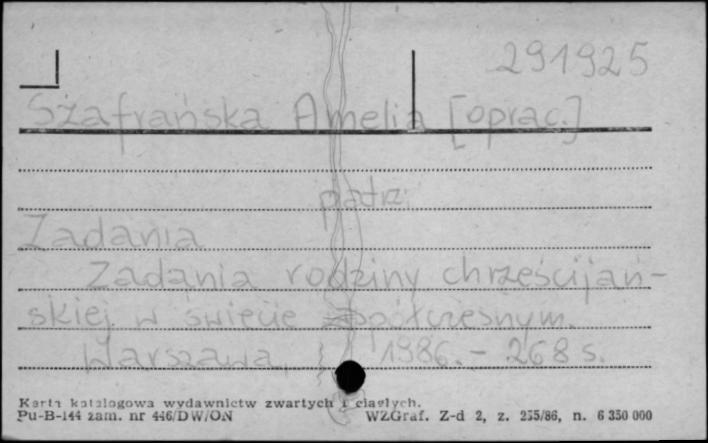 291925
Szafrańska Amelia [oprac.]
patrz
Zadania
Zadania rodziny chrześcijań-
skiej w świecie współczesnym.
Warszawa, 1986. - 268 s.
Karta katalogowa wydawnictw zwartych i ciągłych.
Pu-B-144 zam. nr 446/DW/ON WZGraf. Z-d 2, z. 255/86, n. 6 350 000